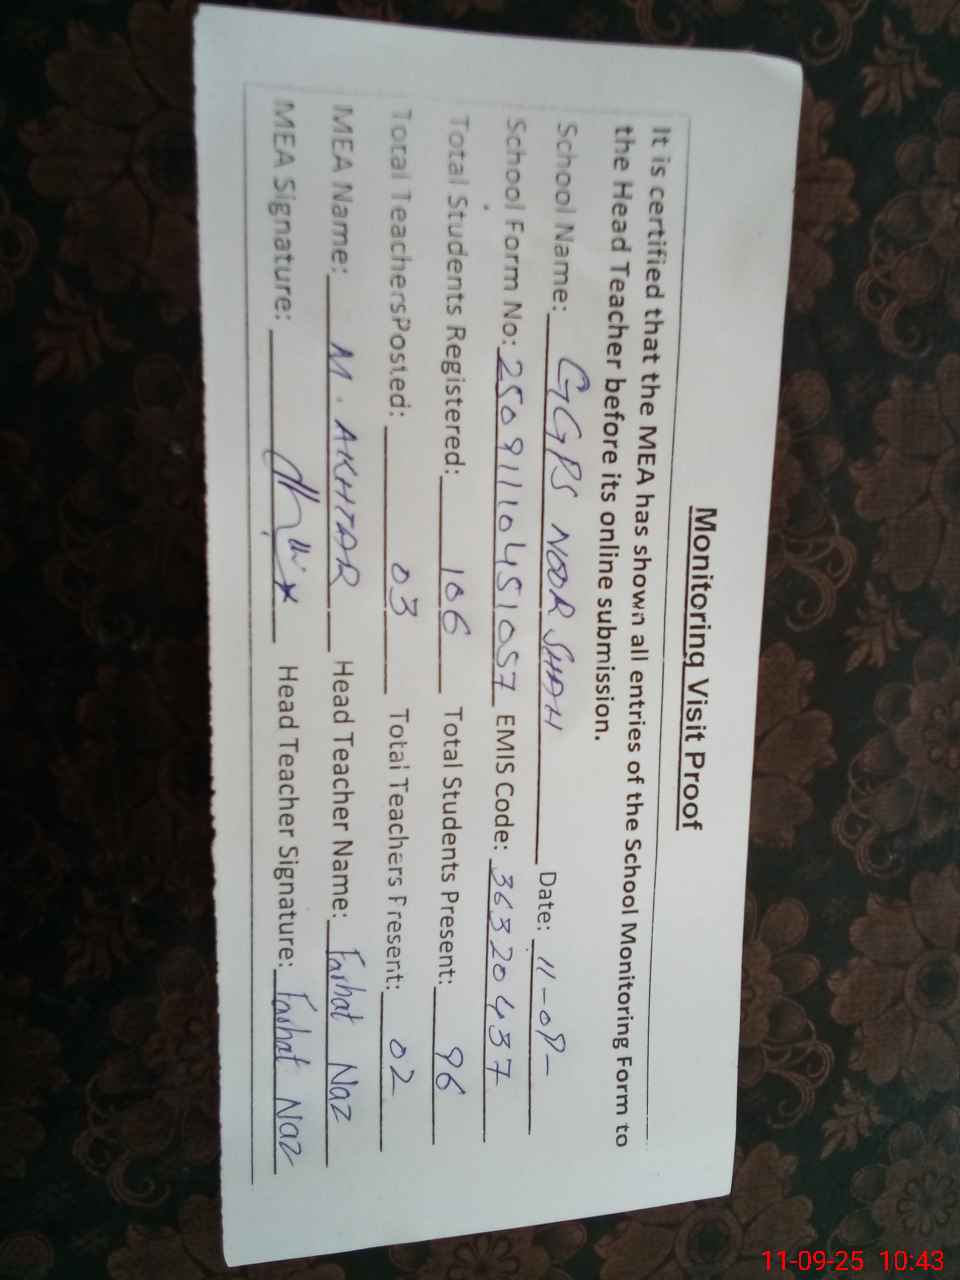 Monitoring Visit Proof
It is certified that the MEA has shown all entries of the School Monitoring Form to
the Head Teacher before its online submission.
School Name: GGPS NOOR SHAH Date: 11-09-
School Form No: 2509111045 1057 EMIS Code: 36320437
Total Students Registered: 106 Total Students Present: 96
Total TeachersPosted: 03 Total Teachers Present: 02
MEA Name: M. AKHTAR Head Teacher Name: Farhat Naz
MEA Signature: Head Teacher Signature: Farhat Naz
11-09-25 10:43